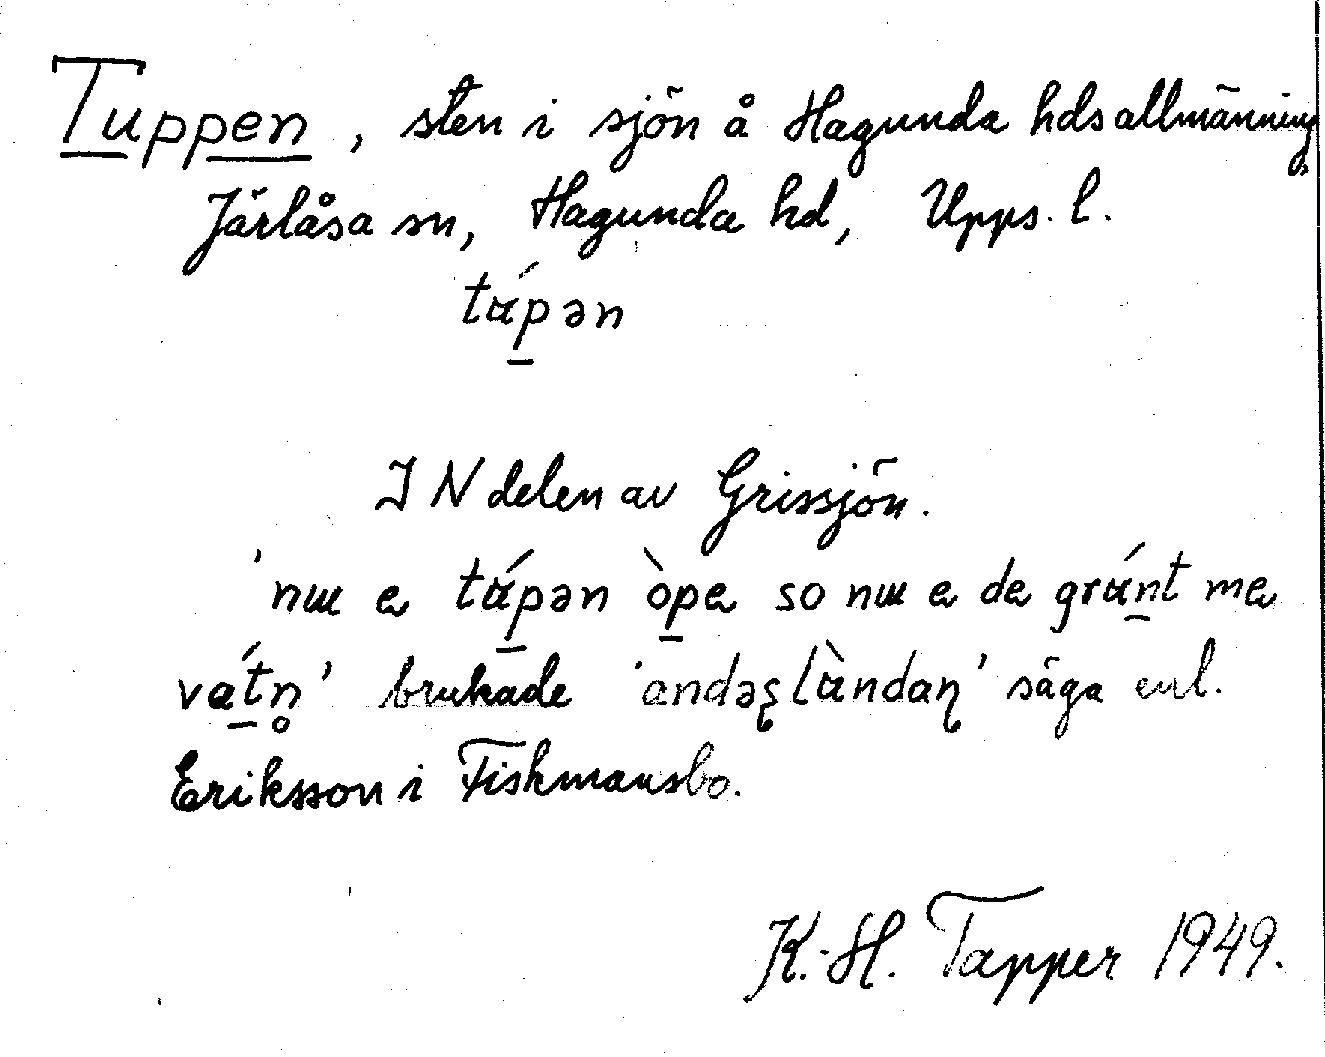 Tuppen, sten i sjön å Hagunda hds allmänning,
Järlåsa sn, Hagunda hd, Upps. l.
tɯ́p̠ən
I N delen av Grissjön.
'nɯ e tɯ́p̠ən òp̠a so nɯ e de grɯ́n̠t me
vat̠́n̥' brukade 'andəʂlɯ̀ndaɳ' säga enl.
Eriksson i Fiskmansbo.
K.-H. Tapper 1949.